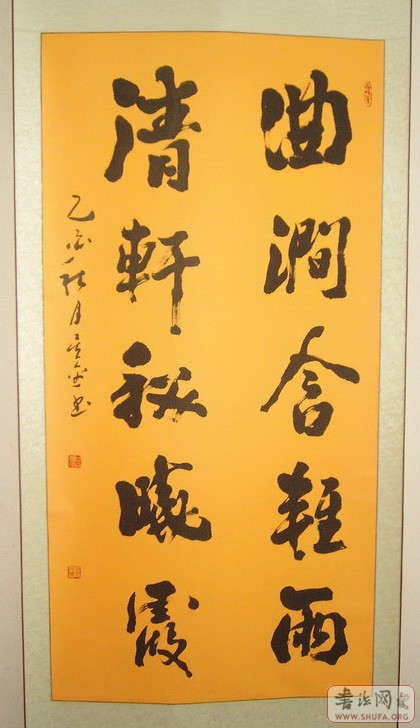 曲澗含輕雨
清軒秘曉霞
乙亥秋月
書法网
WWW.SHUFA.ORG